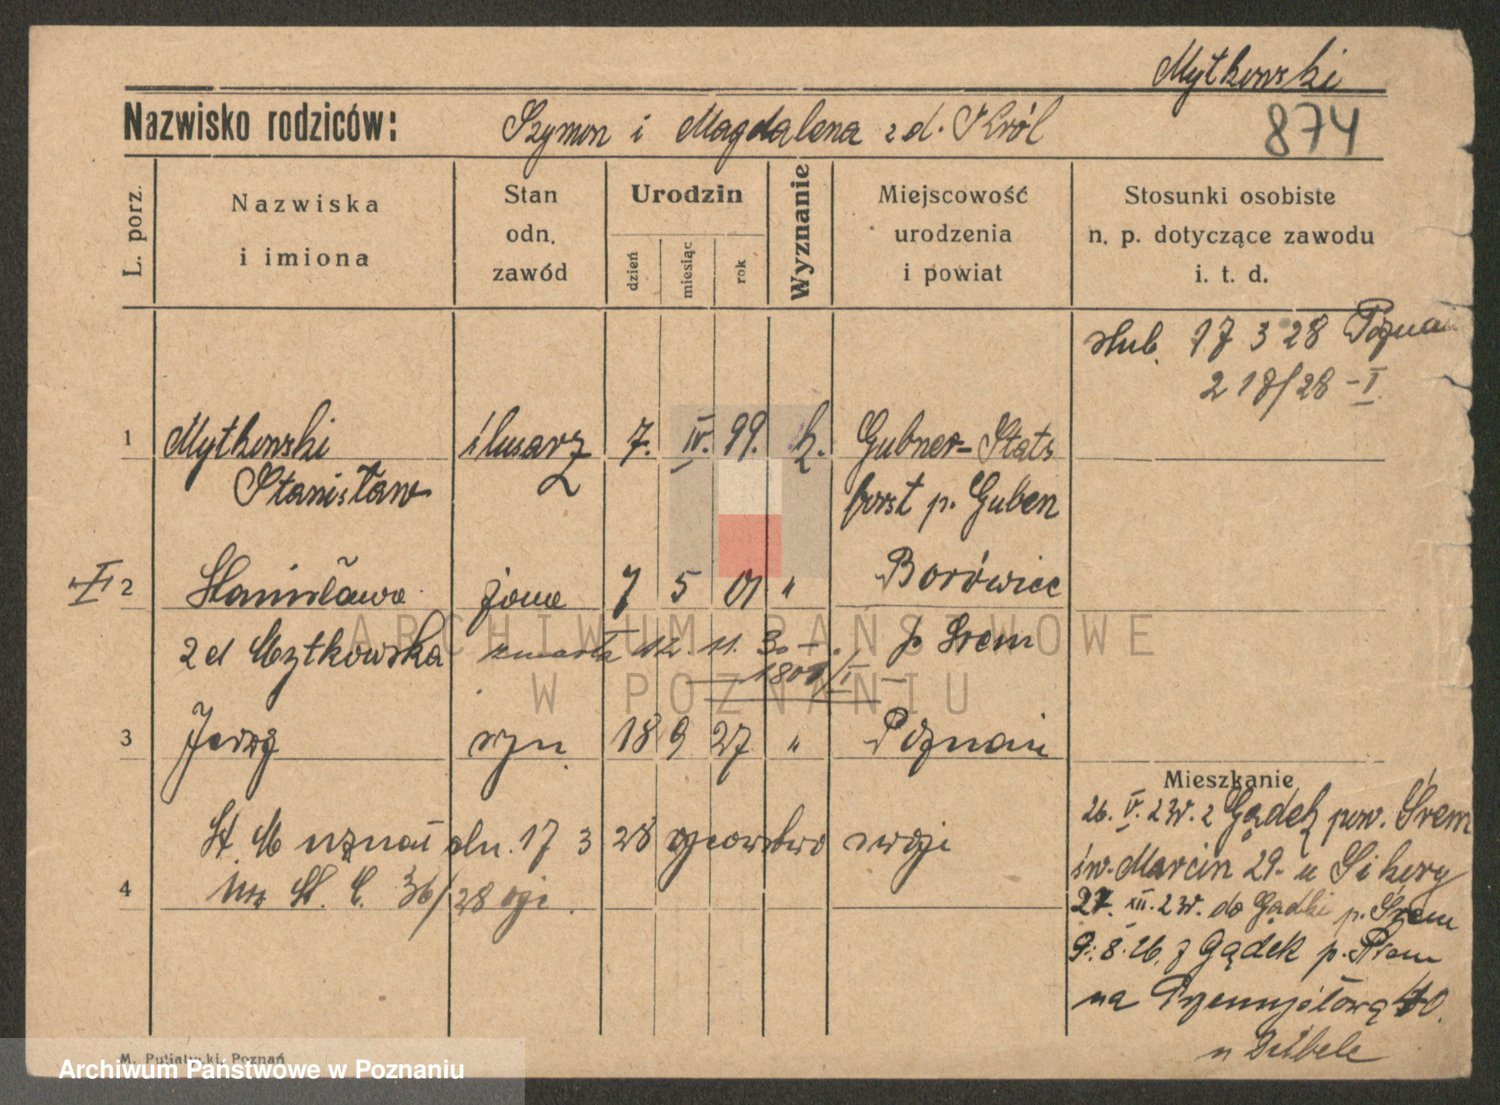 Mytkowski
Nazwisko rodziców: Szymon i Magdalena z d. Król
874
L. porz.
Nazwiska
i imiona
Stan
odn.
zawód
Urodzin
dzień
miesiąc
rok
Wyznanie
Miejscowość
urodzenia
i powiat
Stosunki osobiste
n. p. dotyczące zawodu
i. t. d.
slub. 17 3 28 Poznań
218/28 - I
1 Mytkowski ślusarz 7. IV. 99. k. Gubner-Stats
Stanisław forst p. Guben
2 Stanisława żona 7 5 01 " Borówiec
z d Mytkowska zmarła 12. 11. 30 - p Srem
1801/I -
3 Jerzy syn 18 9 27 " Poznań
St. M uznał dn. 17 3 28 ojcowstwo swoje
4 St. C. 36/28
Mieszkanie
26. V. 23r. z Gądek pow. Śrem
św. Marcin 29. u Sikory
27. XII. 23r. do Gądki p. Śrem
9. 8. 26. z Gądek p. Śrem
na Przemysłową 40.
u
M. Putiatycki, Poznań
ARCHIWUM PAŃSTWOWE
W POZNANIU
Archiwum Państwowe w Poznaniu